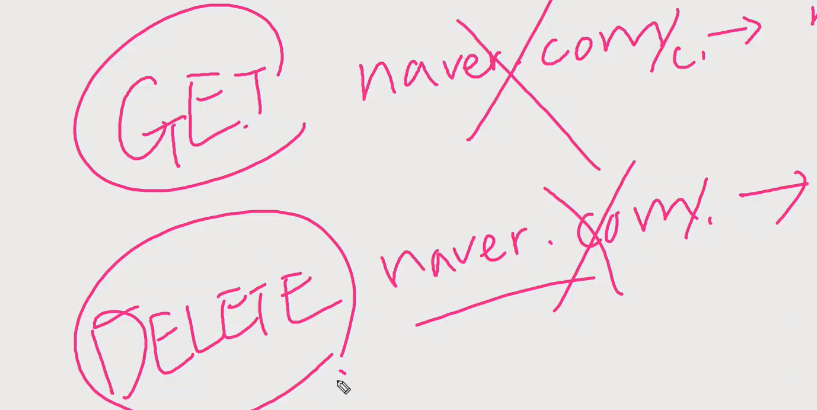 GET naver.com/c. →
DELETE naver.com/. →